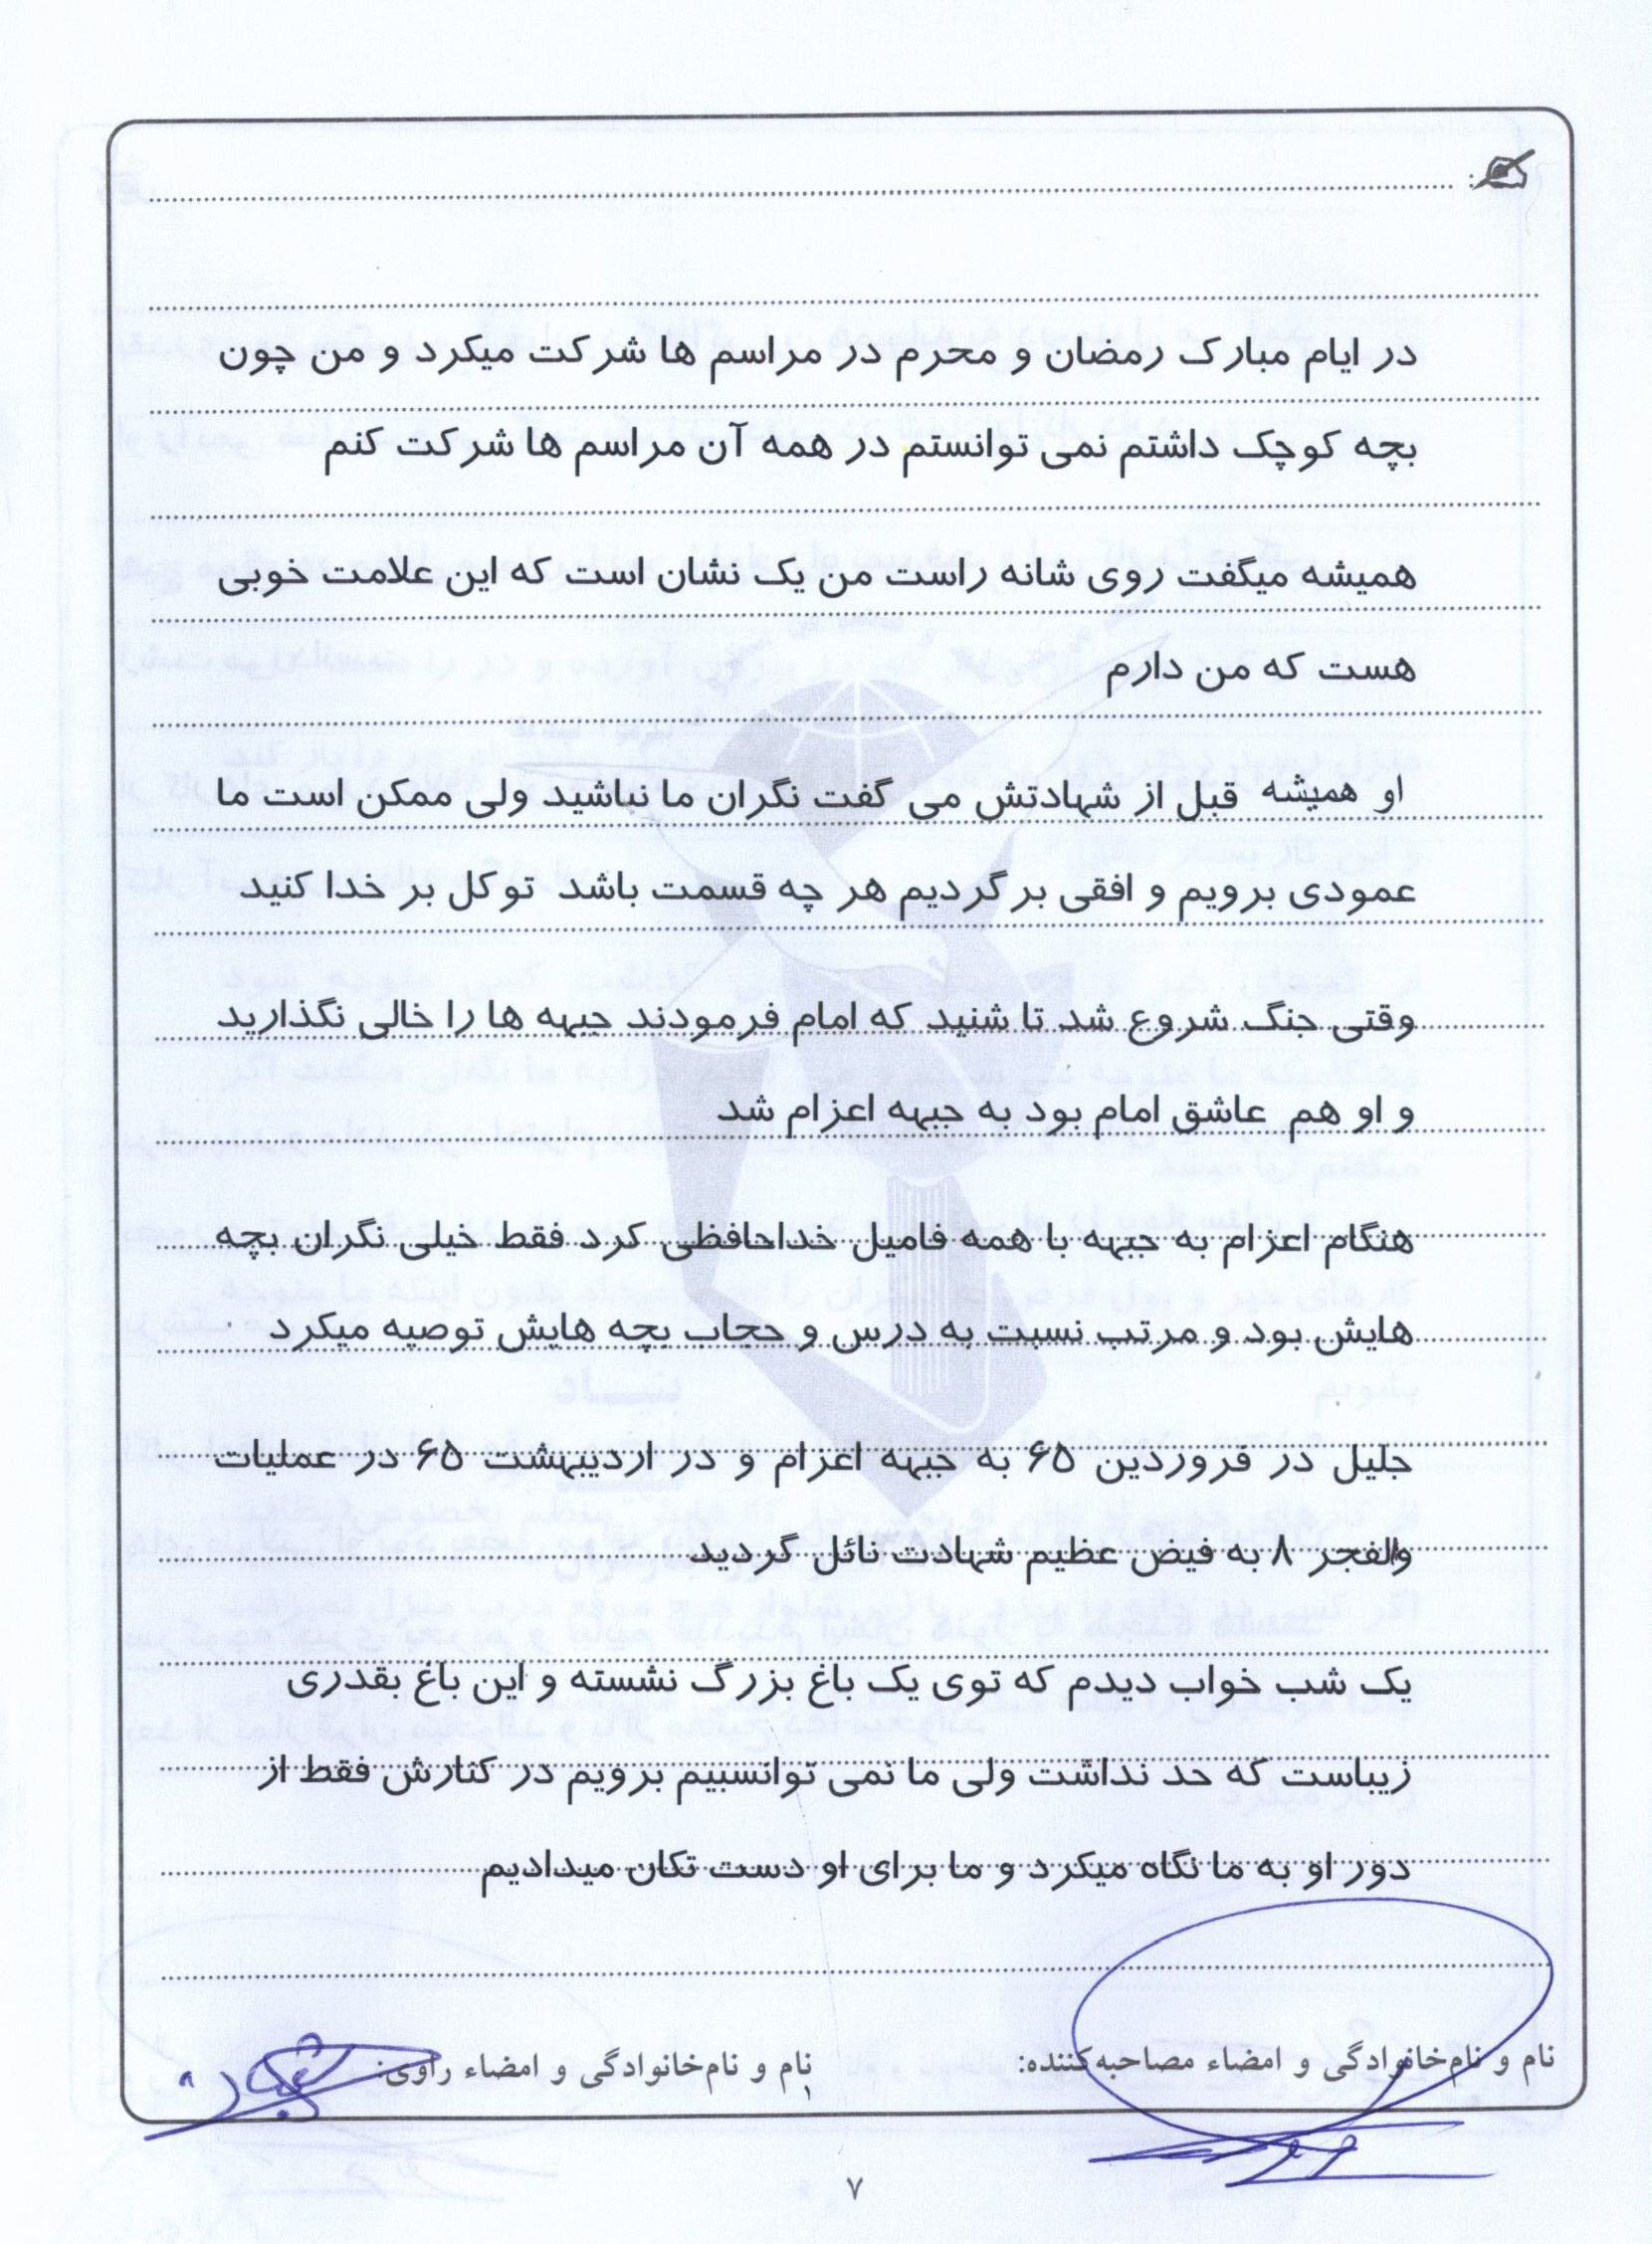 در ایام مبارک رمضان و محرم در مراسم ها شرکت میکرد و من چون
بچه کوچک داشتم نمی توانستم در همه آن مراسم ها شرکت کنم
همیشه میگفت روی شانه راست من یک نشان است که این علامت خوبی
هست که من دارم
او همیشه قبل از شهادتش می گفت نگران ما نباشید ولی ممکن است ما
عمودی برویم و افقی برگردیم هر چه قسمت باشد توکل بر خدا کنید
وقتی جنگ شروع شد تا شنید که امام فرمودند جبهه ها را خالی نگذارید
و او هم عاشق امام بود به جبهه اعزام شد
هنگام اعزام به جبهه با همه فامیل خداحافظی کرد فقط خیلی نگران بچه
هایش بود و مرتب نسبت به درس و حجاب بچه هایش توصیه میکرد
جلیل در فروردین ۶۵ به جبهه اعزام و در اردیبهشت ۶۵ در عملیات
والفجر ۸ به فیض عظیم شهادت نائل گردید
یک شب خواب دیدم که توی یک باغ بزرگ نشسته و این باغ بقدری
زیباست که حد نداشت ولی ما نمی توانسییم برویم در کنارش فقط از
دور او به ما نگاه میکرد و ما برای او دست تکان میدادیم
نام و نام‌خانوادگی و امضاء مصاحبه‌کننده:
نام و نام‌خانوادگی و امضاء راوی:
۷